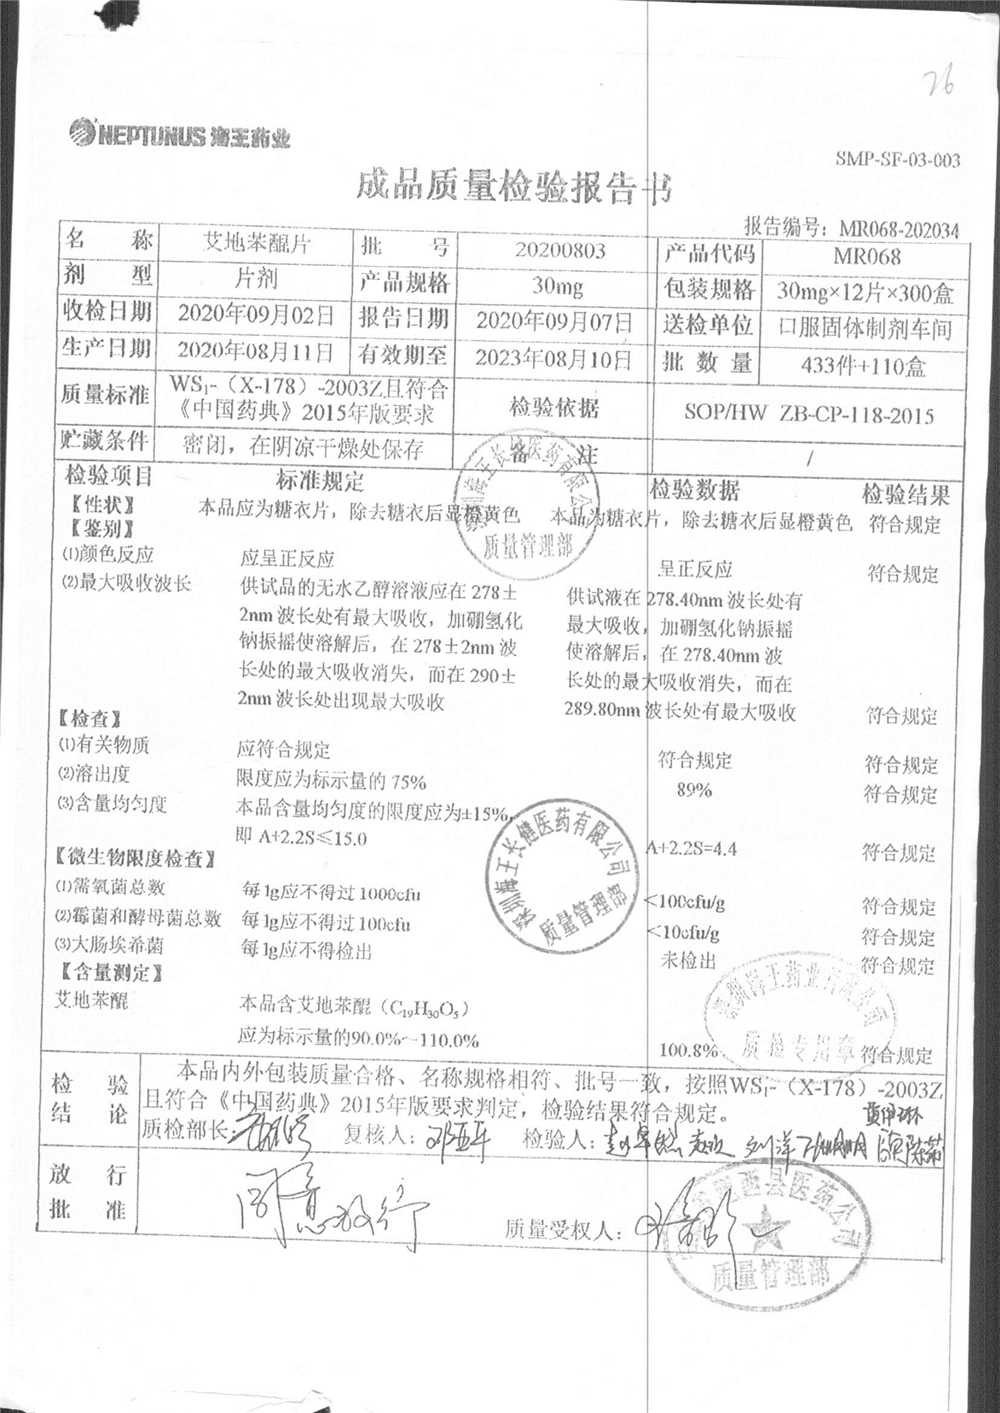 26
NEPTUNUS 海王药业
SMP-SF-03-003
成品质量检验报告书
报告编号：MR068-202034
名 称 艾地苯醌片 批 号 20200803 产品代码 MR068
剂 型 片剂 产品规格 30mg 包装规格 30mg×12片×300盒
收检日期 2020年09月02日 报告日期 2020年09月07日 送检单位 口服固体制剂车间
生产日期 2020年08月11日 有效期至 2023年08月10日 批 数 量 433件+110盒
质量标准 WS₁-（X-178）-2003Z且符合《中国药典》2015年版要求 检验依据 SOP/HW ZB-CP-118-2015
贮藏条件 密闭，在阴凉干燥处保存 备 注 /
检验项目 标准规定 检验数据 检验结果
【性状】 本品应为糖衣片，除去糖衣后显橙黄色 本品为糖衣片，除去糖衣后显橙黄色 符合规定
【鉴别】
⑴颜色反应 应呈正反应 呈正反应 符合规定
⑵最大吸收波长 供试品的无水乙醇溶液应在 278± 供试液在 278.40nm 波长处有
2nm 波长处有最大吸收，加硼氢化 最大吸收，加硼氢化钠振摇
钠振摇使溶解后，在 278±2nm 波 使溶解后，在 278.40nm 波
长处的最大吸收消失，而在 290± 长处的最大吸收消失，而在
2nm 波长处出现最大吸收 289.80nm 波长处有最大吸收 符合规定
【检查】
⑴有关物质 应符合规定 符合规定 符合规定
⑵溶出度 限度应为标示量的 75% 89% 符合规定
⑶含量均匀度 本品含量均匀度的限度应为±15%，
即 A+2.2S≤15.0 A+2.2S=4.4 符合规定
【微生物限度检查】
⑴需氧菌总数 每 1g应不得过 1000cfu <100cfu/g 符合规定
⑵霉菌和酵母菌总数 每 1g应不得过 100cfu <10cfu/g 符合规定
⑶大肠埃希菌 每 1g应不得检出 未检出 符合规定
【含量测定】
艾地苯醌 本品含艾地苯醌（C₁₉H₃₀O₅）
应为标示量的90.0%～110.0% 100.8% 符合规定
检 验 结 论 本品内外包装质量合格、名称规格相符、批号一致，按照WS₁-（X-178）-2003Z
且符合《中国药典》2015年版要求判定，检验结果符合规定。
质检部长： 复核人：邓亚平 检验人：
放 行 批 准 同意放行 质量受权人：
深圳海王长健医药有限公司
质量管理部
深圳海王长健医药有限公司
质量管理部
深圳海王药业有限公司
质检专用章
西县医药公司
质量管理部